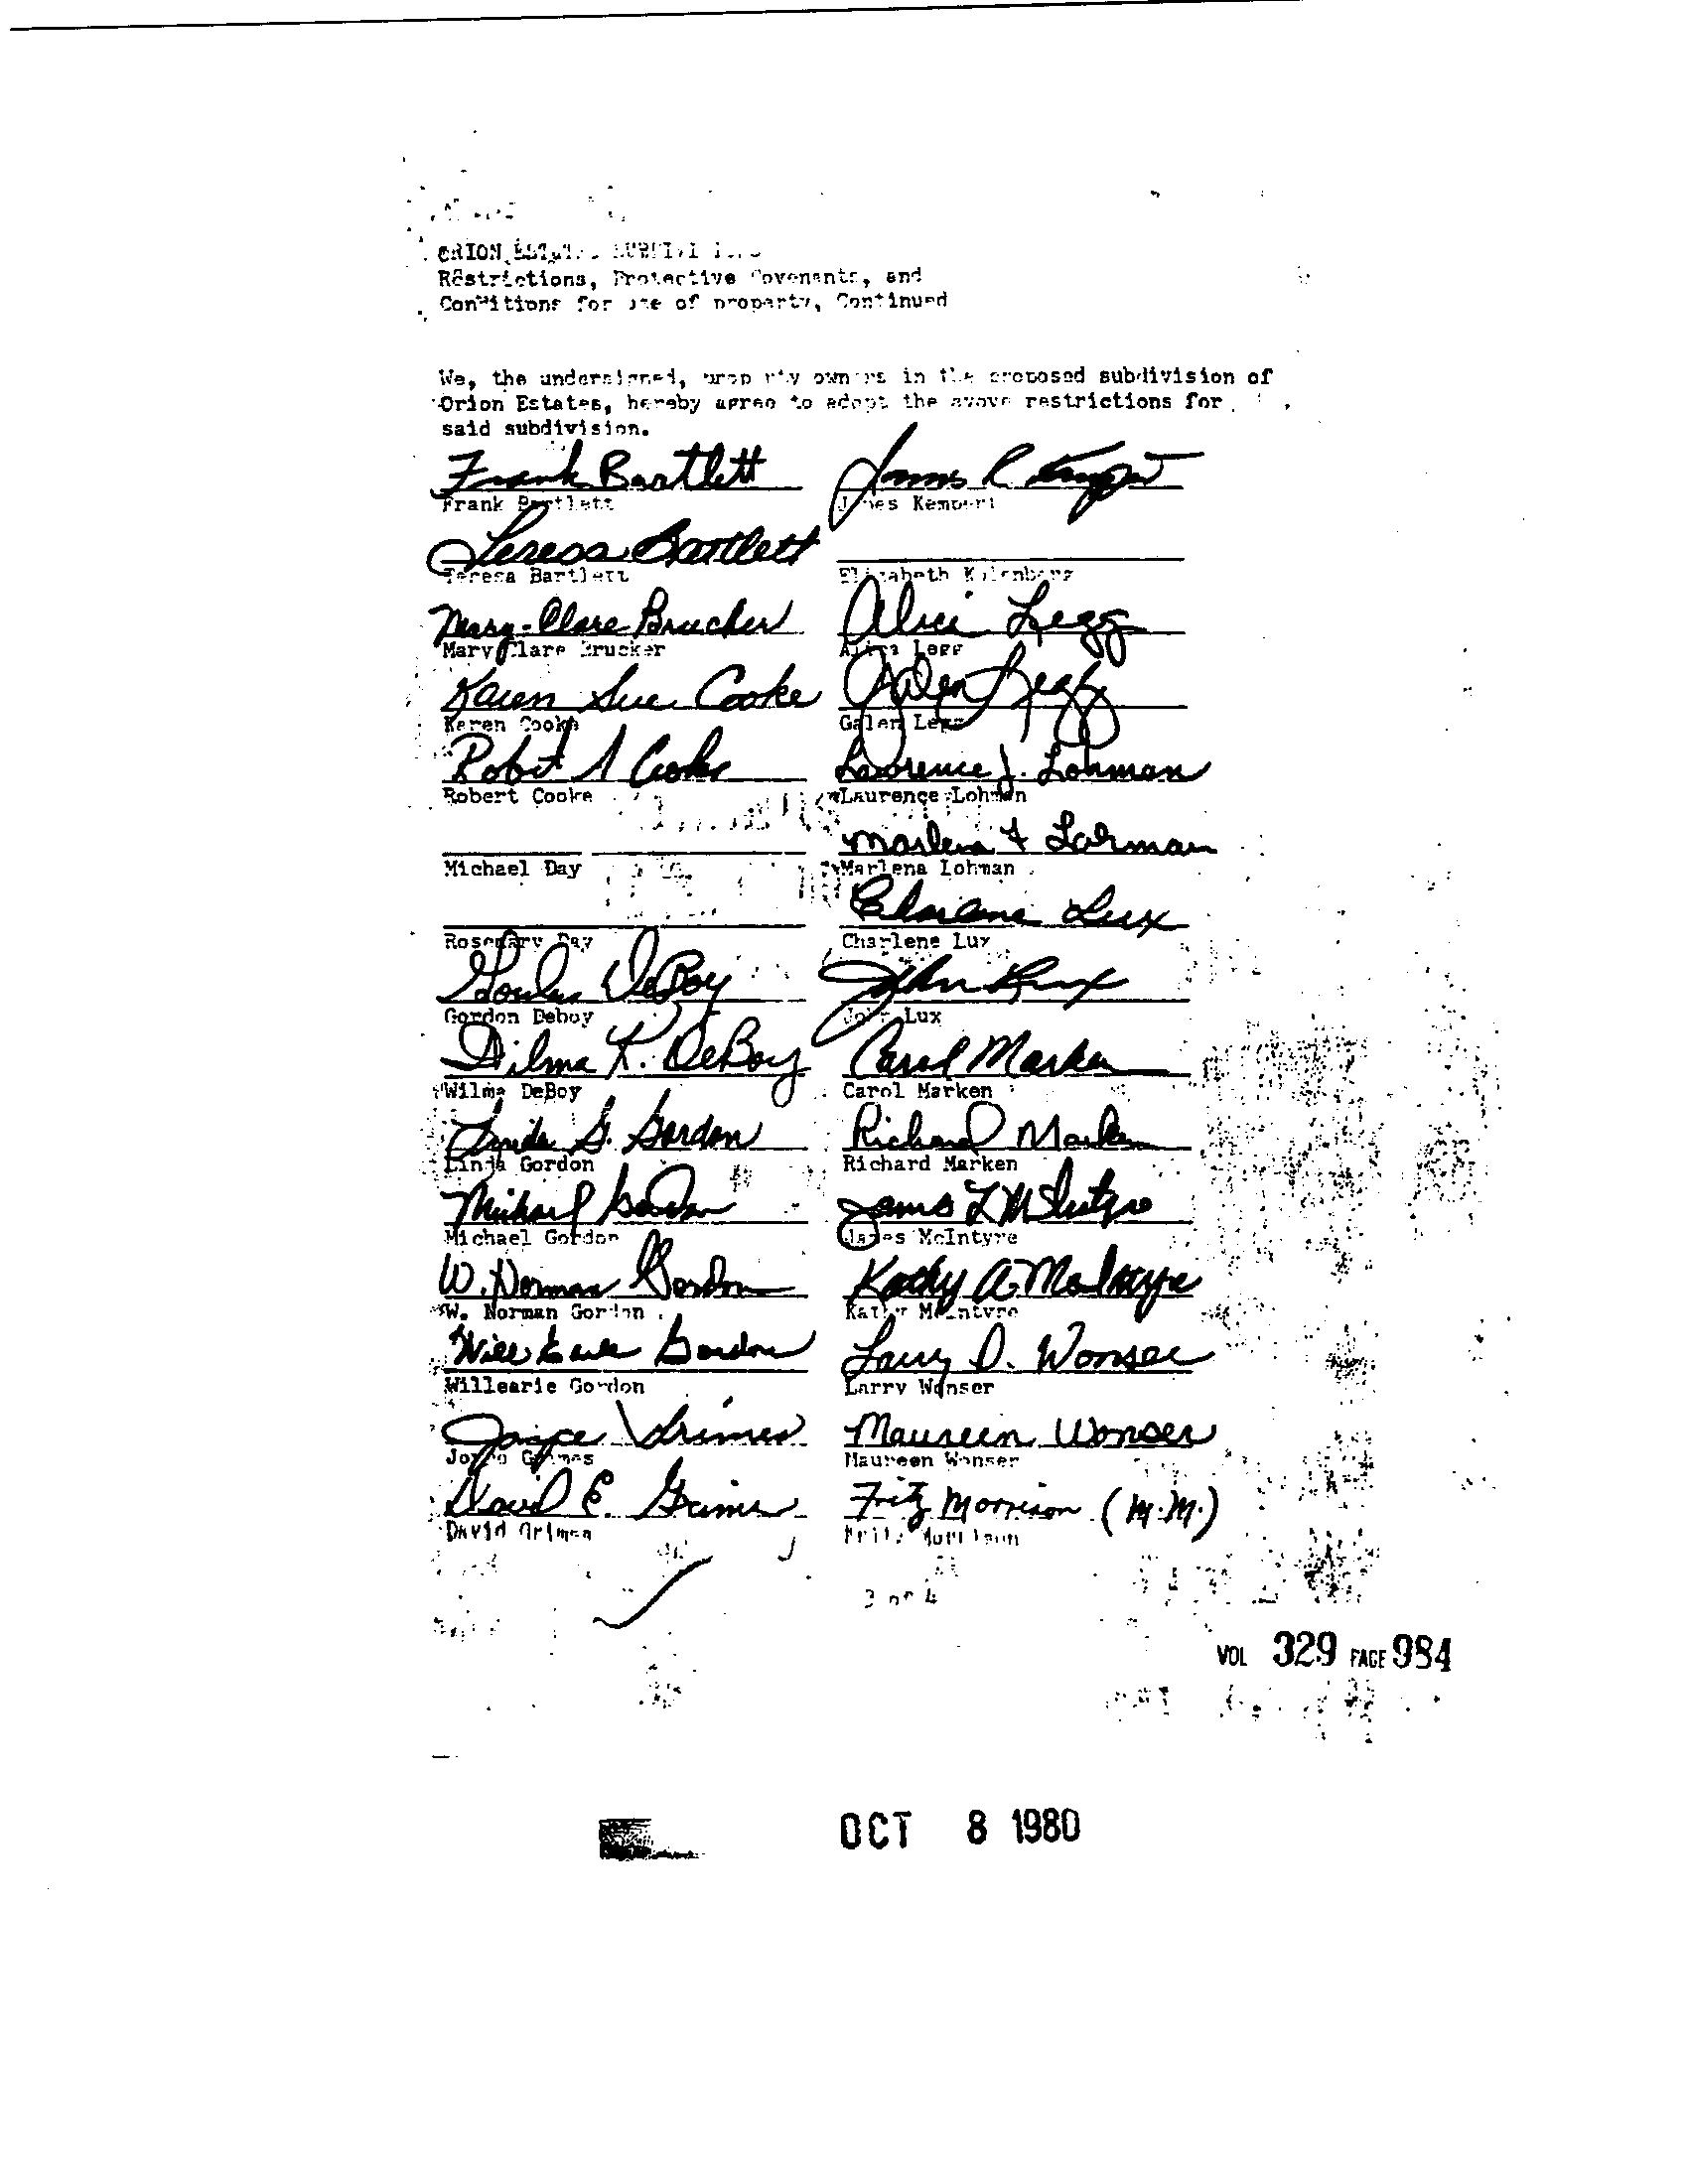 ORION
Restrictions, Protective Covenants, and
Conditions for use of property, Continued
We, the undersigned, property owners in the proposed subdivision of
Orion Estates, hereby agree to adopt the avove restrictions for
said subdivision.
Frank Bartlett
Frank Bartlett
Teresa Bartlett
Teresa Bartlett
Mary-Clare Brucker
Mary Clare Brucker
Karen Sue Cooke
Karen Cooke
Robert Cooke
Robert Cooke
Michael Day
Rosemary Day
Gordon DeBoy
Gordon Deboy
Wilma K. DeBoy
Wilma DeBoy
Linda G. Gordon
Linda Gordon
Michael Gordon
Michael Gordon
W. Norman Gordon
W. Norman Gordon
Willearle Gordon
Willearie Gordon
Joyce Grimes
Joyce Grimes
David E. Grimes
David Grimes
James R Kempert
James Kempert
Elizabeth
Alice Legg
Legg
Galen Legg
Galen Legg
Lawrence J. Lohman
Laurence Lohman
Marlena F Lohman
Marlena Lohman
Charlene Lux
Charlene Lux
John Lux
John Lux
Carol Marken
Carol Marken
Richard Marken
Richard Marken
James L McIntyre
James McIntyre
Kathy A. McIntyre
Kathy McIntyre
Larry D. Wonser
Larry Wonser
Maureen Wonser
Maureen Wonser
Fritz Morrison (M.M.)
Fritz Morrison
3 of 4
VOL 329 PAGE 984
OCT 8 1980